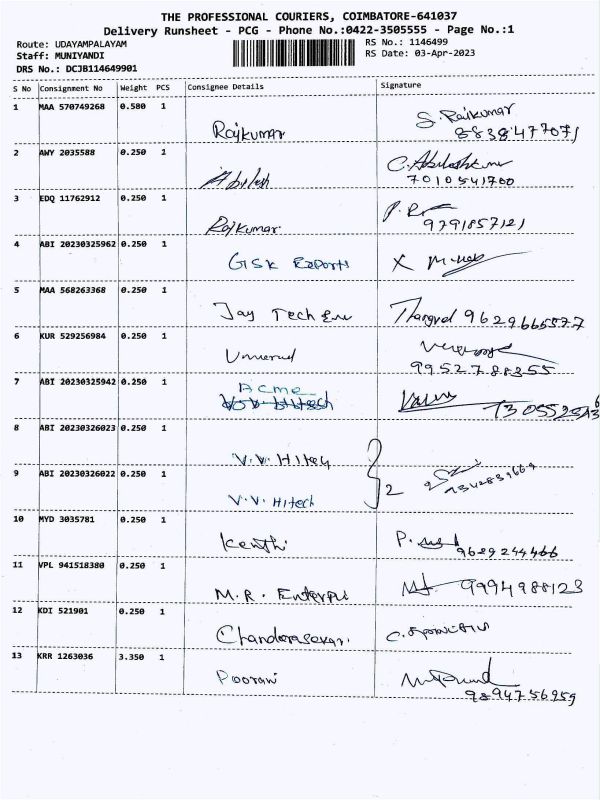 THE PROFESSIONAL COURIERS, COIMBATORE-641037
Delivery Runsheet - PCG - Phone No.:0422-3505555 - Page No.:1
Route: UDAYAMPALAYAM
Staff: MUNIYANDI
DRS No.: DCJB114649901
RS No.: 1146499
RS Date: 03-Apr-2023
S No Consignment No Weight PCS Consignee Details Signature
1 MAA 570749268 0.580 1
Rajkumar S. Rajkumar
8838477071
2 AWY 2035588 0.250 1
Abilash C. Abilashkumar
7010541700
3 EDQ 11762912 0.250 1
Rajkumar
9791857121
4 ABI 20230325962 0.250 1
GSK Exports X
5 MAA 568263368 0.250 1
Jay Tech Thangvel 9629665577
6 KUR 529256984 0.250 1
9952788355
7 ABI 20230325942 0.250 1
Acme
8 ABI 20230326023 0.250 1
V.V. Hitech
9 ABI 20230326022 0.250 1
V.V. Hitech 2
10 MYD 3035781 0.250 1
Keerthi P.
9629244466
11 VPL 941518380 0.250 1
M.R. Enterpri 9994988123
12 KDI 521901 0.250 1
Chandrasekar.
13 KRR 1263036 3.350 1
Poorani
9894756959